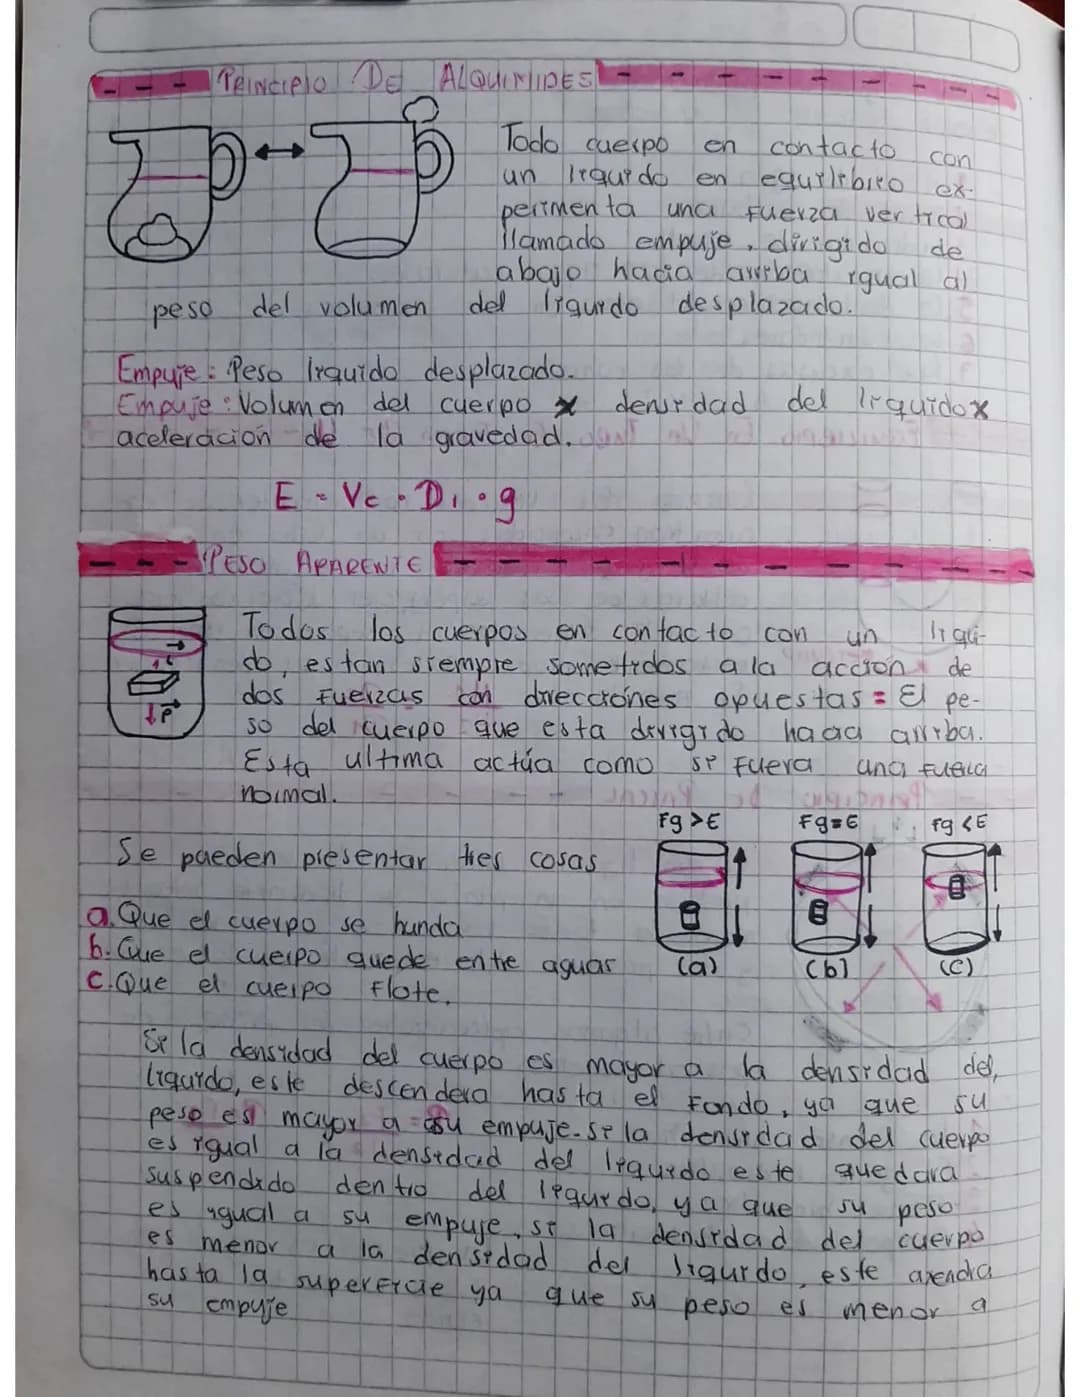 PRINCIPIO DE ALQUIMIDES
Todo cuerpo en contacto con
un liquido en equilibiro ex-
perimenta una fuerza vertical
llamado empuje, dirigido de
abajo hacia arriba igual al
peso del volumen del liquido desplazado.
Empuje: Peso liquido desplazado.
Empuje: Volumen del cuerpo x densidad del liquido x
aceleracion de la gravedad.
E = Vc · D1 · g
PESO APARENTE
Todos los cuerpos en contacto con un liqui-
do, estan siempre sometidos a la acción de
dos fuerzas con direcciones opuestas = El pe-
so del cuerpo que esta dirigido hacia arriba.
Esta ultima actúa como si fuera una fuerza
normal.
P
Fg > E Fg = E Fg < E
Se pueden presentar tres cosas
a. Que el cuerpo se hunda
b. Que el cuerpo quede entre aguas
c. Que el cuerpo flote.
(a) (b) (c)
Si la densidad del cuerpo es mayor a la densidad del,
liquido, este descendera hasta el fondo, ya que su
peso es mayor a su empuje. si la densidad del cuerpo
es igual a la densidad del liquido este quedara
suspendido dentro del liquido, ya que su peso
es igual a su empuje, si la densidad del cuerpo
es menor a la densidad del liquido, este
hasta la superficie ya que su peso es menor a
su empuje